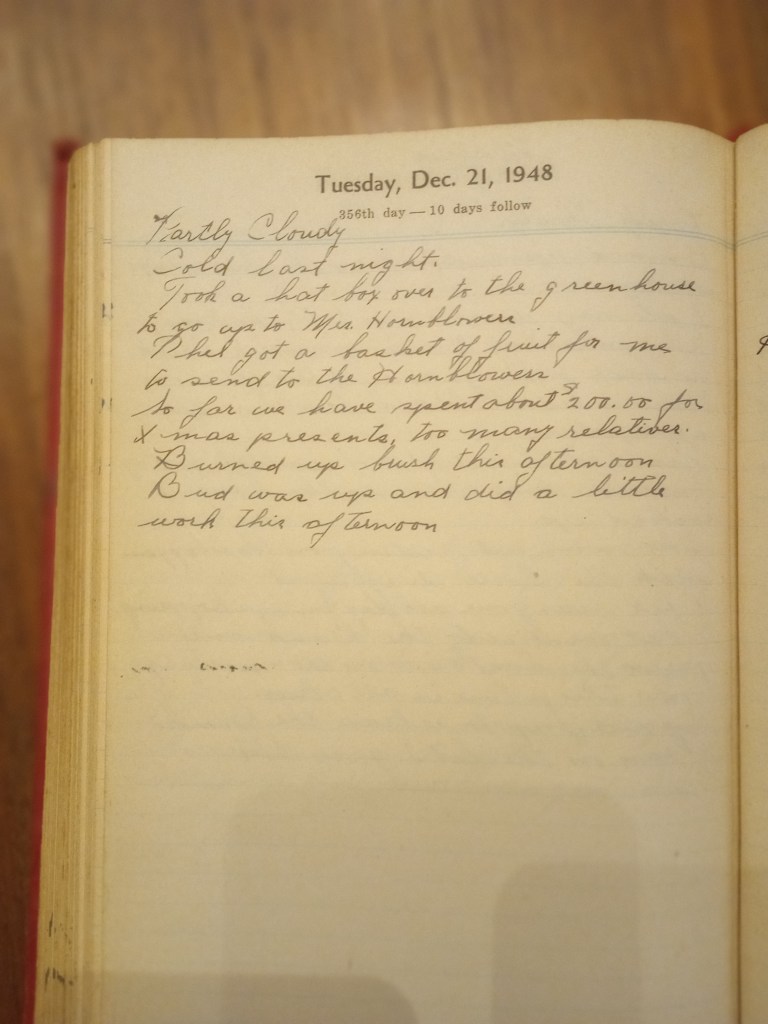 Tuesday, Dec. 21, 1948
356th day — 10 days follow
Partly Cloudy
Cold last night.
Took a hat box over to the greenhouse
to go up to Mrs. Hornblowers
Phel got a basket of fruit for me
to send to the Hornblowers
So far we have spent about $200.00 for
Xmas presents, too many relatives.
Burned up brush this afternoon
Bud was up and did a little
work this afternoon